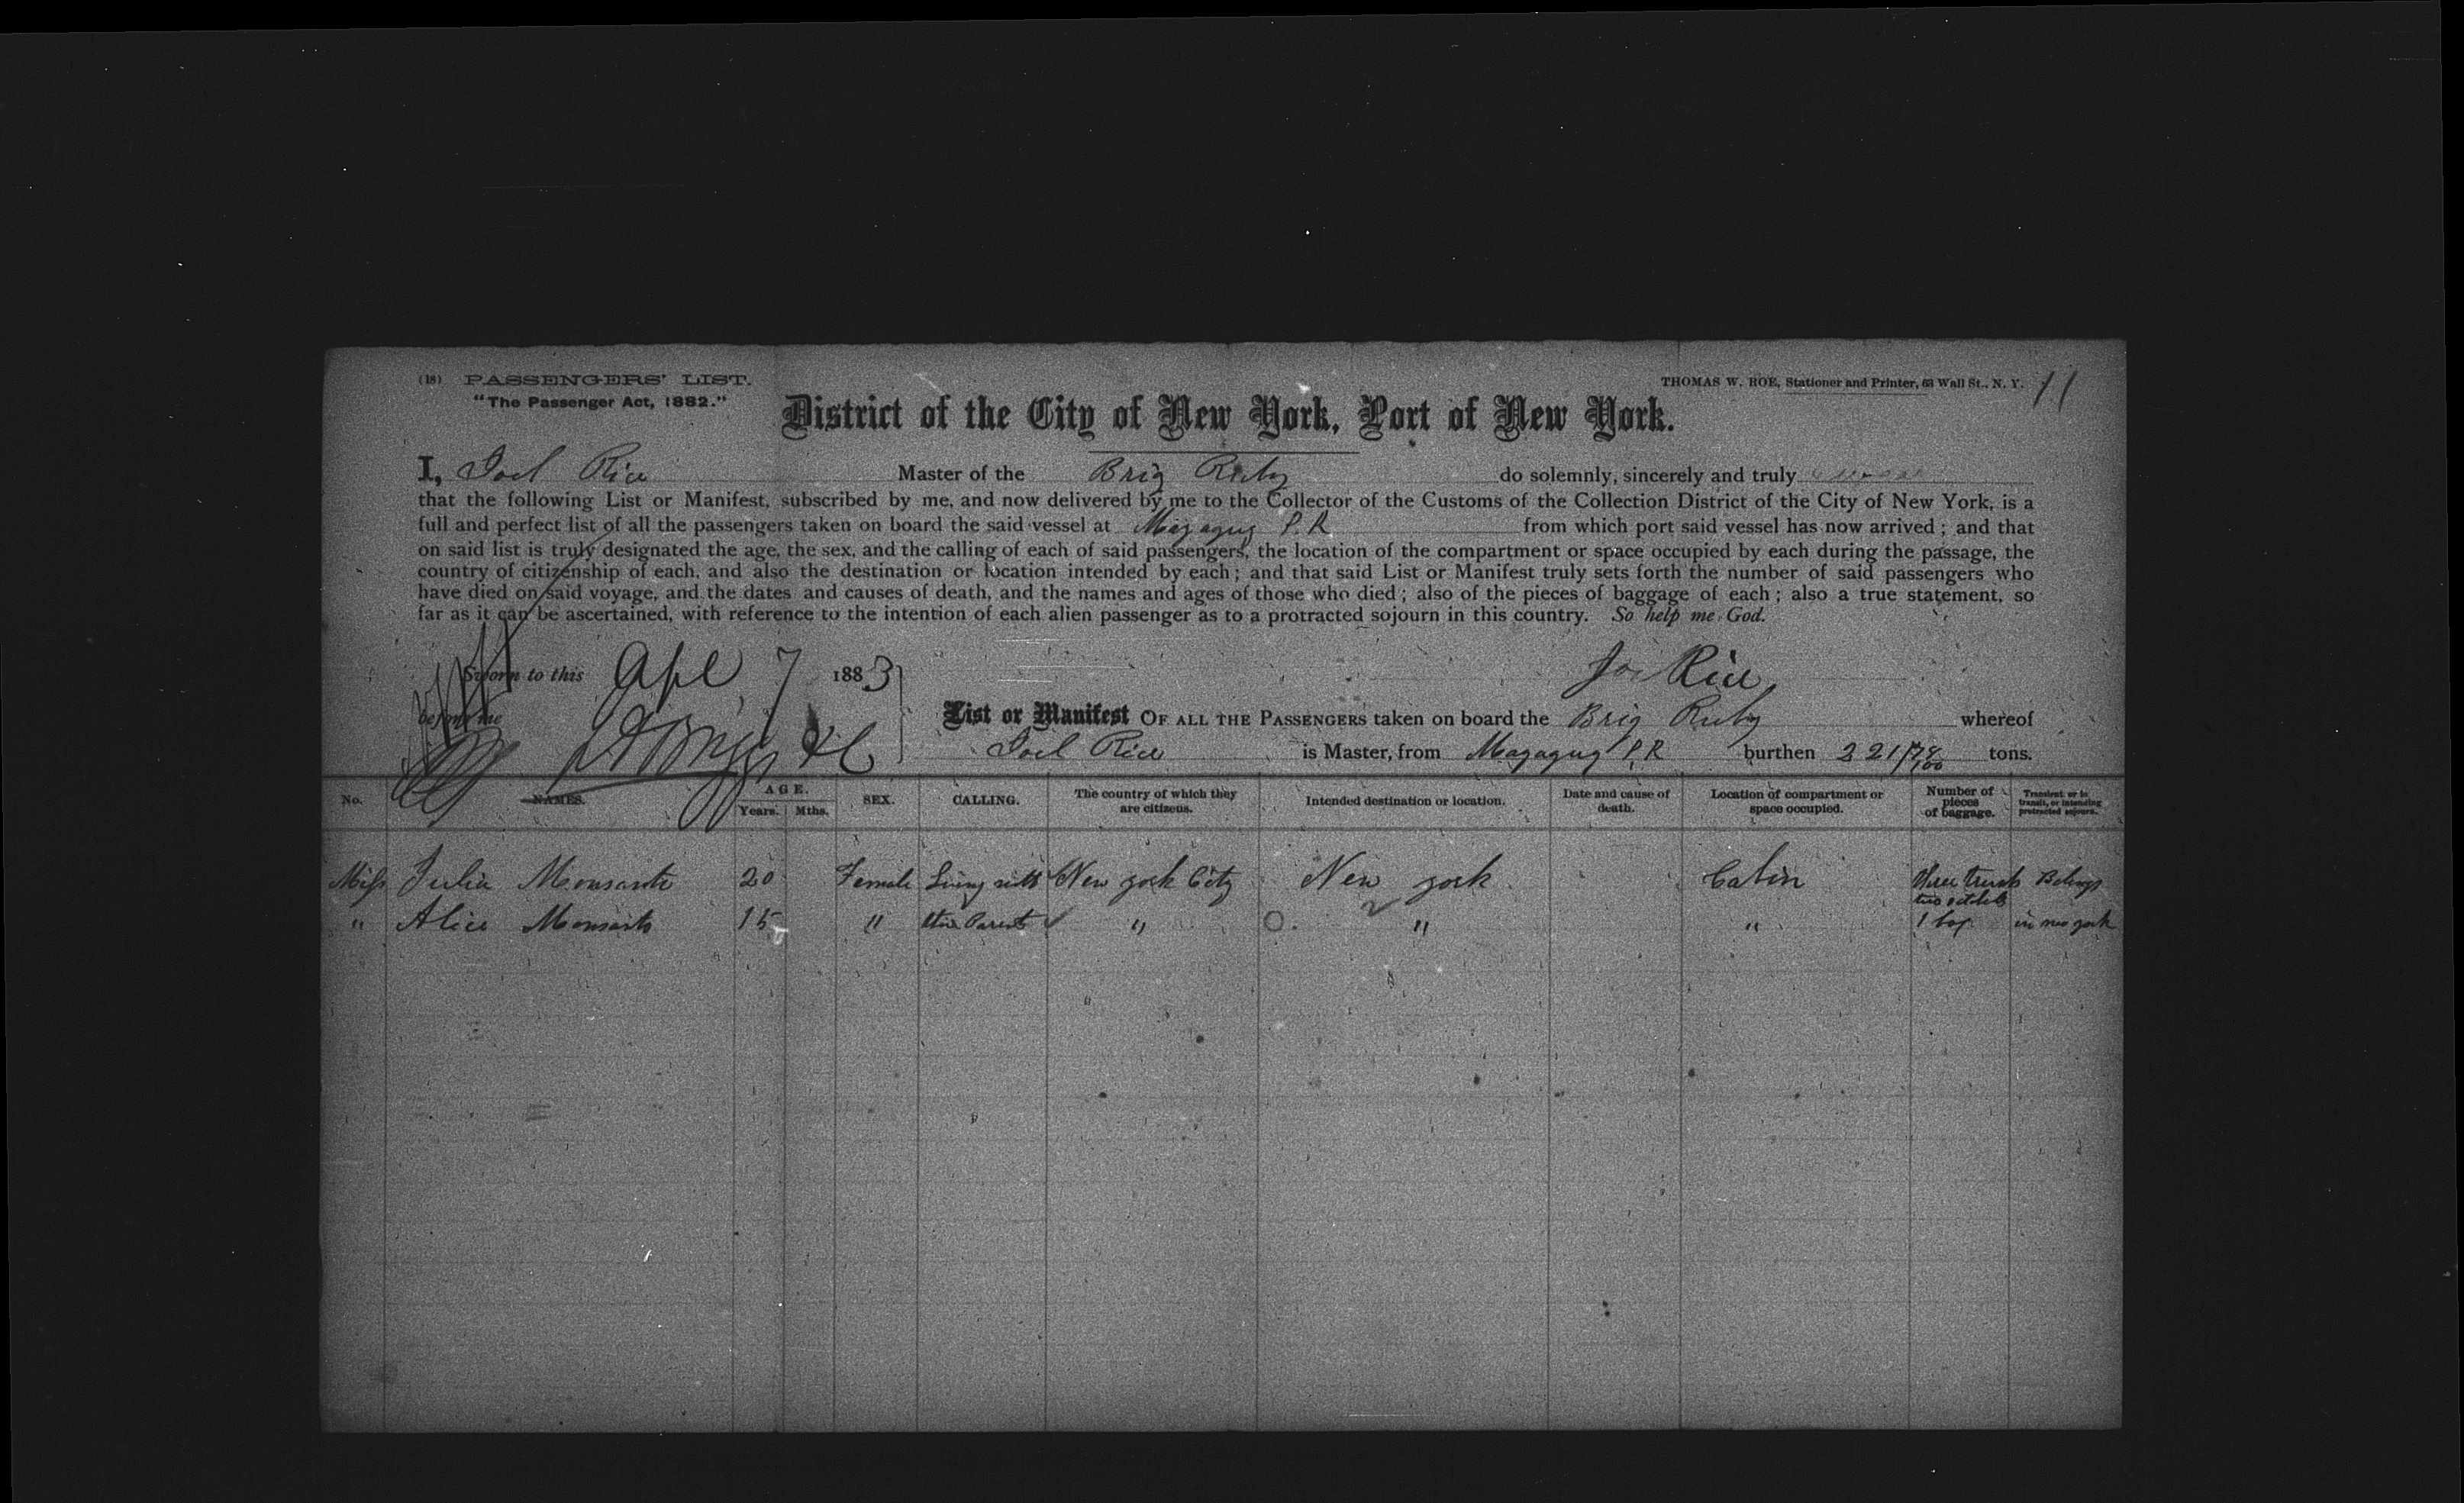 (18) PASSENGERS' LIST.
"The Passenger Act, 1882."
THOMAS W. ROE, Stationer and Printer, 63 Wall St., N. Y.
11
District of the City of New York, Port of New York.
I, Joel Rice Master of the Brig Ruby do solemnly, sincerely and truly swear
that the following List or Manifest, subscribed by me, and now delivered by me to the Collector of the Customs of the Collection District of the City of New York, is a
full and perfect list of all the passengers taken on board the said vessel at Mayaguz P.R from which port said vessel has now arrived; and that
on said list is truly designated the age, the sex, and the calling of each of said passengers, the location of the compartment or space occupied by each during the passage, the
country of citizenship of each, and also the destination or location intended by each; and that said List or Manifest truly sets forth the number of said passengers who
have died on said voyage, and the dates and causes of death, and the names and ages of those who died; also of the pieces of baggage of each; also a true statement, so
far as it can be ascertained, with reference to the intention of each alien passenger as to a protracted sojourn in this country. So help me God.
Sworn to this Apl 7 1883
Joel Rice
before me
List or Manifest OF ALL THE PASSENGERS taken on board the Brig Ruby whereof
Joel Rice is Master, from Mayaguz P.R burthen 221 78/100 tons.
No. NAMES. AGE. Years. Mths. SEX. CALLING. The country of which they are citizens. Intended destination or location. Date and cause of death. Location of compartment or space occupied. Number of pieces of baggage. Transient or in transit, or intending protracted sojourn.
Miss Julia Monsanto 20 Female Living with New york City New york Cabin three trunks Belongs
two satchels
" Alice Monsanto 15 " their Parents " " " 1 box in new york